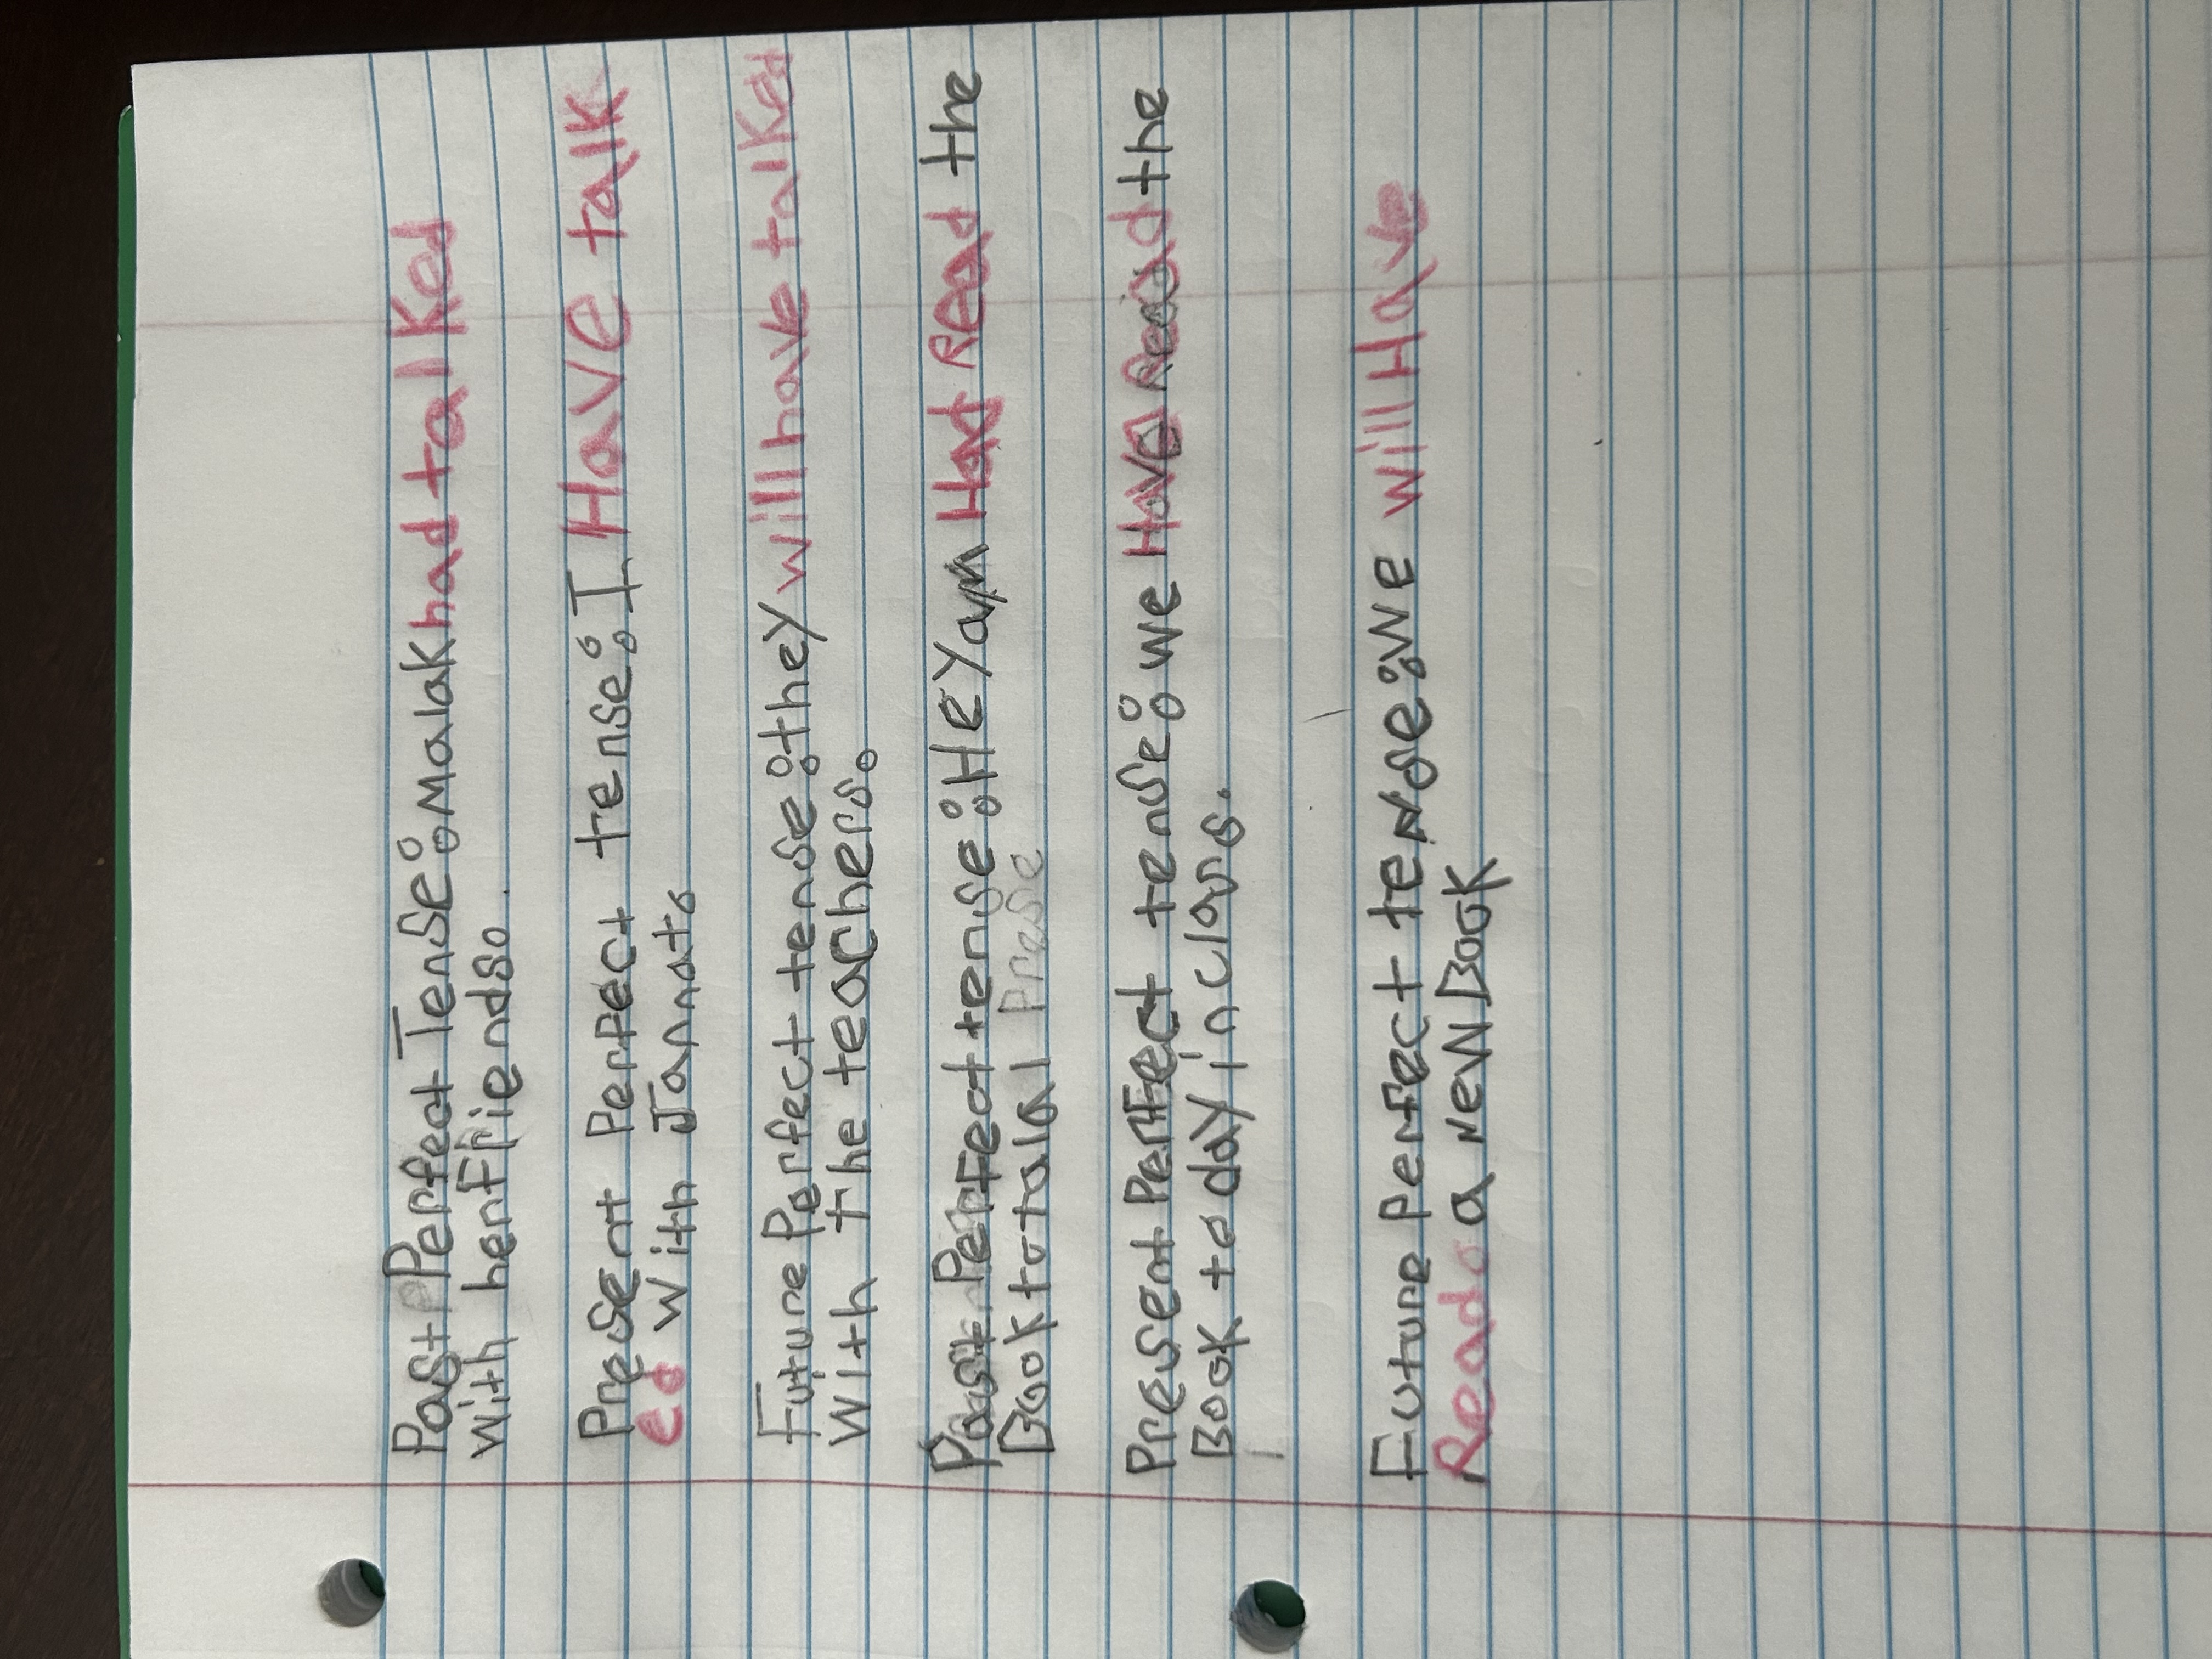 Past Perfect Tense: Malak had talked
with her friends.
Present Perfect tense: I Have talk
ed with Jannat.
Future Perfect tense: they will have talked
With the teachers.
Past Perfect tense: HeYam Had Read the
Book to talal Prese
Present Perfect tense: we Have Read the
Book to day in class.
Future perfect tense: we will Have
Read a new Book